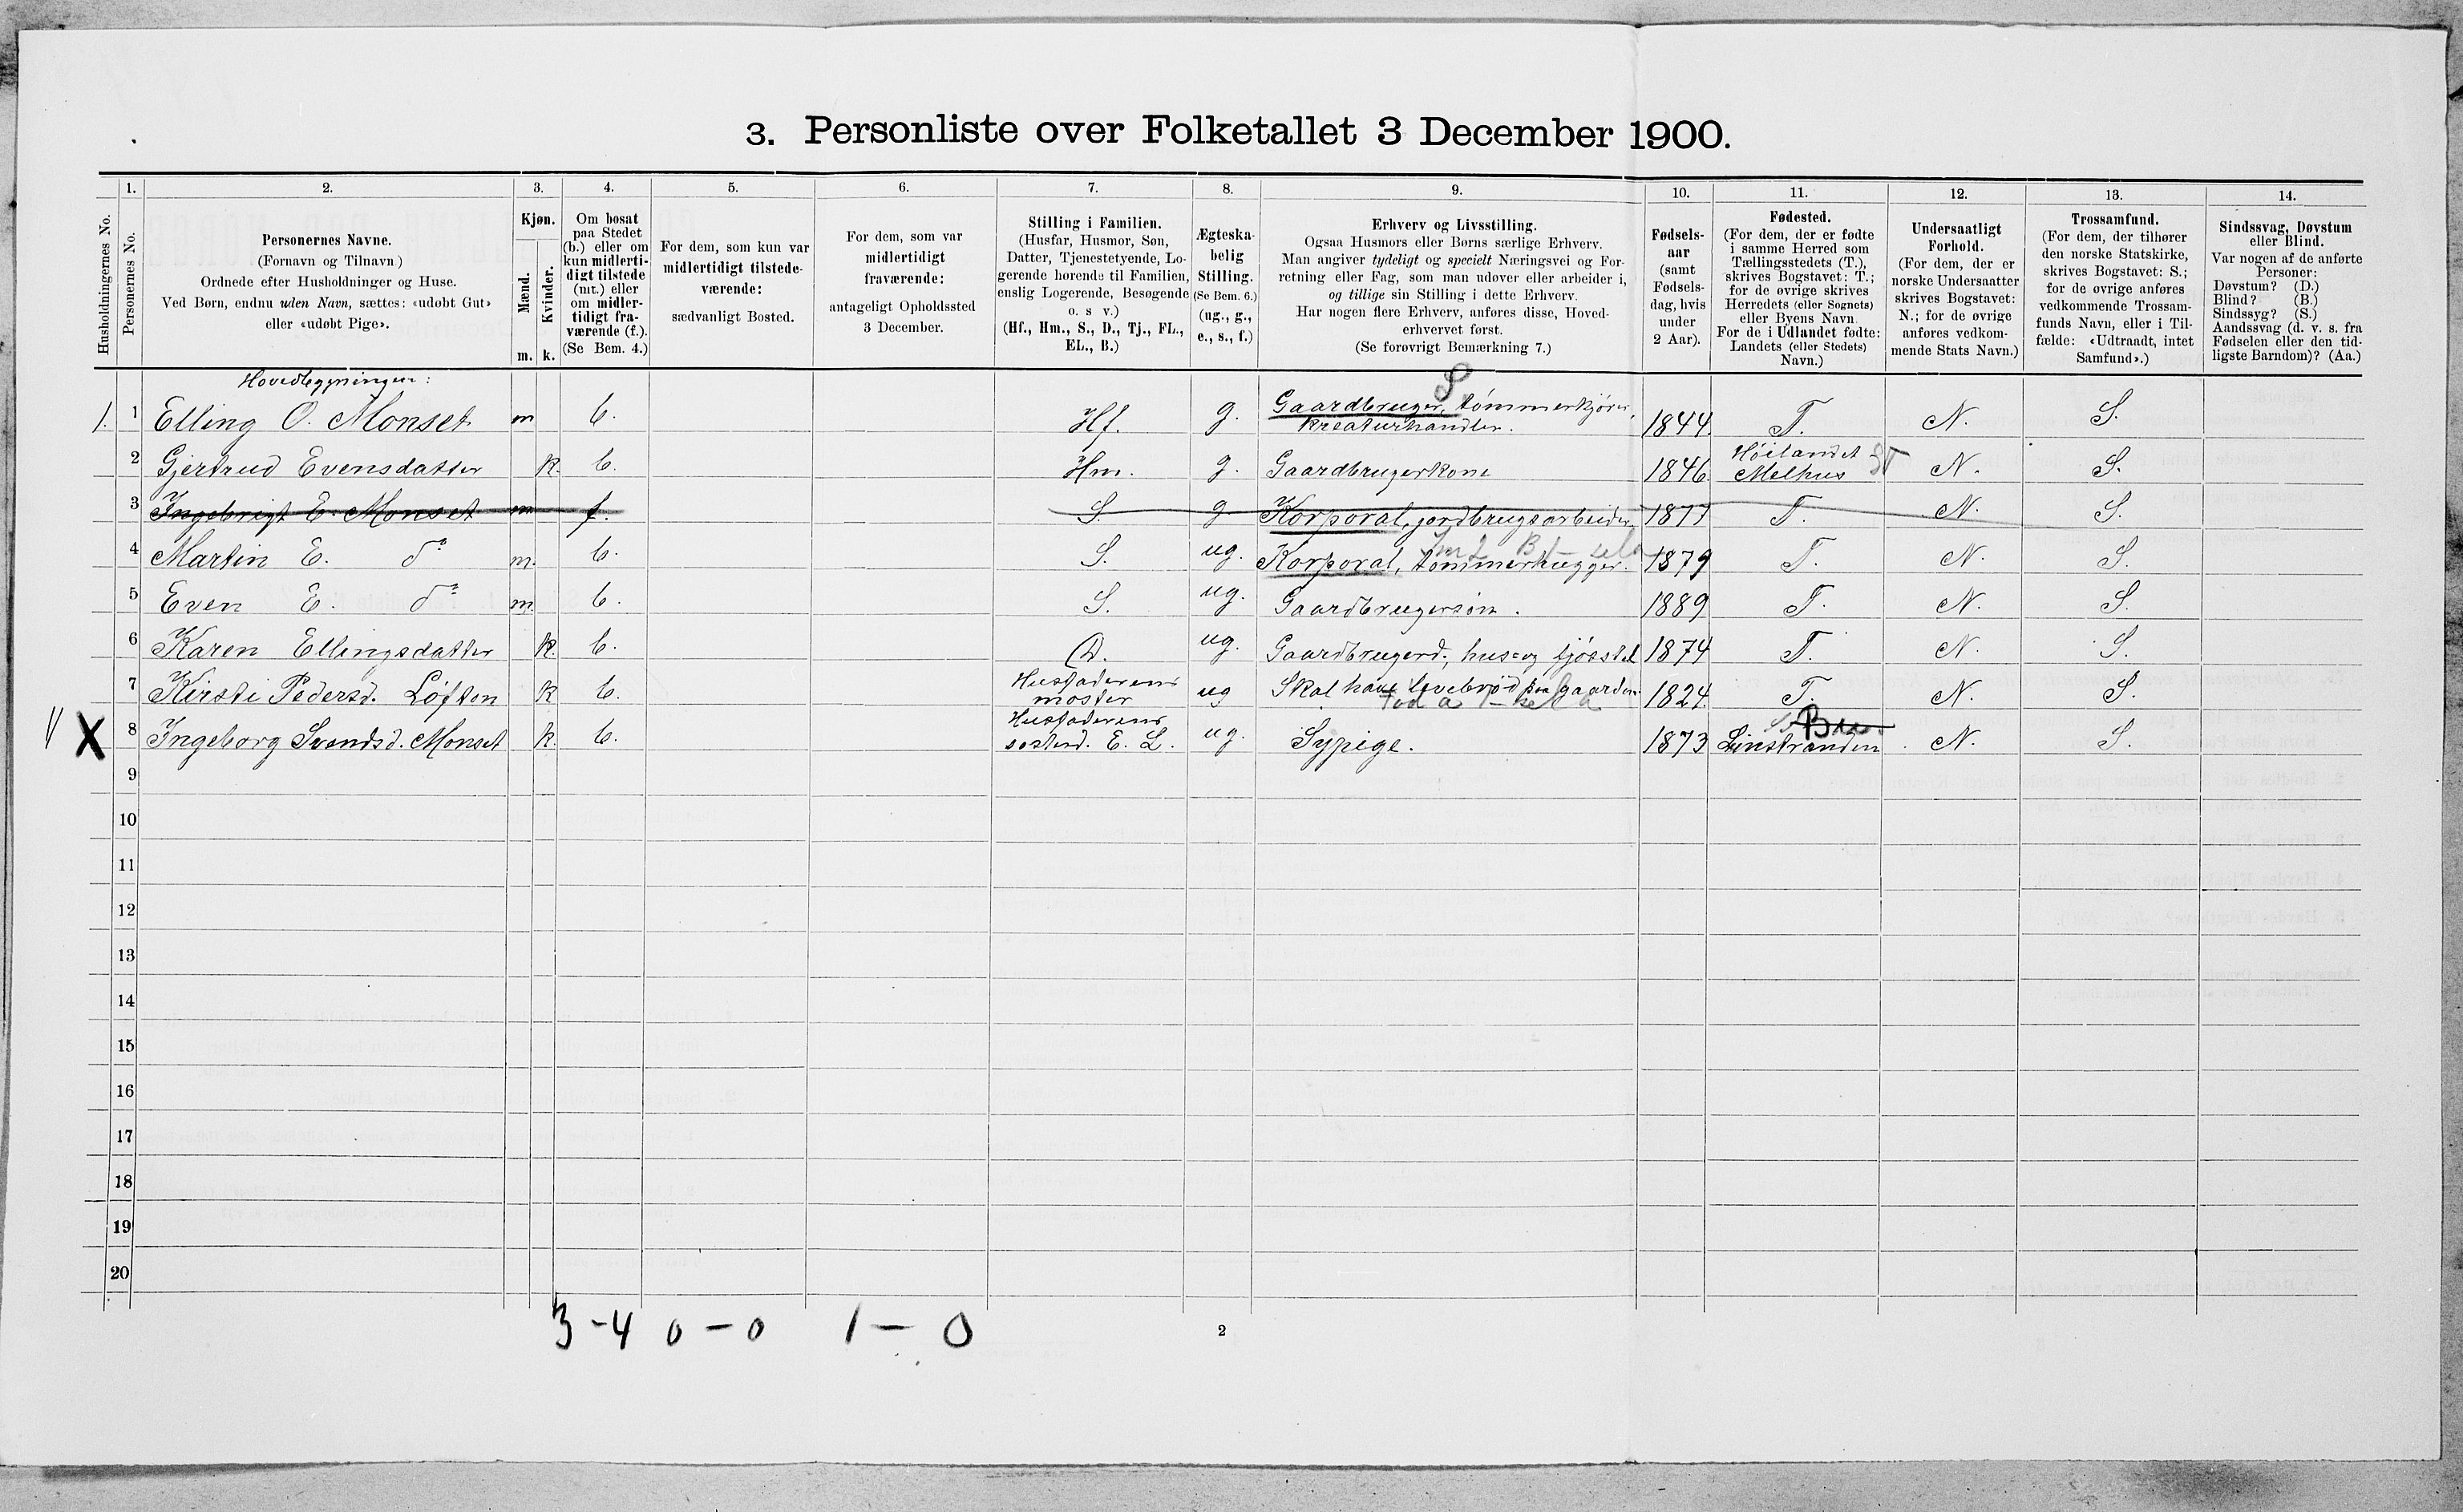 3. Personliste over Folketallet 3 December 1900.
Husholdningernes No.
1.
Personernes No.
2.
Personernes Navne.
(Fornavn og Tilnavn)
Ordnede efter Husholdninger og Huse.
Ved Børn, endnu uden Navn, sættes: «udøbt Gut»
eller «udøbt Pige».
3.
Kjøn.
Mænd.
Kvinder.
m. k.
4.
Om bosat
paa Stedet
(b.) eller om
kun midlerti-
digt tilstede
(mt.) eller
om midler-
tidigt fra-
værende (f.).
(Se Bem. 4.)
5.
For dem, som kun var
midlertidigt tilstede-
værende:
sædvanligt Bosted.
6.
For dem, som var
midlertidigt
fraværende:
antageligt Opholdssted
3 December.
7.
Stilling i Familien.
(Husfar, Husmor, Søn,
Datter, Tjenestetyende, Lo-
gerende hørende til Familien,
enslig Logerende, Besøgende
o. s v.)
(Hf., Hm., S., D., Tj., FL.,
EL., B.)
8.
Ægteska-
belig
Stilling.
(Se Bem. 6.)
(ug., g.,
e., s., f.)
9.
Erhverv og Livsstilling.
Ogsaa Husmors eller Børns særlige Erhverv.
Man angiver tydeligt og specielt Næringsvei og For-
retning eller Fag, som man udøver eller arbeider i,
og tillige sin Stilling i dette Erhverv.
Har nogen flere Erhverv, anføres disse, Hoved-
erhvervet først.
(Se forøvrigt Bemærkning 7.)
10.
Fødsels-
aar
(samt
Fødsels-
dag, hvis
under
2 Aar).
11.
Fødested.
(For dem, der er fødte
i samme Herred som
Tællingsstedets (T.),
skrives Bogstavet: T.;
for de øvrige skrives
Herredets (eller Sognets)
eller Byens Navn.
For de i Udlandet fødte:
Landets (eller Stedets)
Navn.)
12.
Undersaatligt
Forhold.
(For dem, der er
norske Undersaatter
skrives Bogstavet:
N.; for de øvrige
anføres vedkom-
mende Stats Navn.)
13.
Trossamfund.
(For dem, der tilhører
den norske Statskirke,
skrives Bogstavet: S.;
for de øvrige anføres
vedkommende Trossam-
funds Navn, eller i Til-
fælde: «Udtraadt, intet
Samfund».)
14.
Sindssvag, Døvstum
eller Blind.
Var nogen af de anførte
Personer:
Døvstum? (D.)
Blind? (B.)
Sindssyg? (S.)
Aandssvag (d. v. s. fra
Fødselen eller den tid-
ligste Barndom)? (Aa.)
Hovedbygningen:
S
1. 1 Elling O. Monset m b. Hf. g. Gaardbruger, tømmerkjører, kreaturhandler. 1844 T. N. S.
2 Gjertrud Evensdatter k. b. Hm. g. Gaardbrugerkone 1846 Høilandet Melhus ST N. S.
3 Ingebrigt E. Monset m f. S. g. Korporal, jordbrugsarbeider 1877 T. N. S.
4 Martin E. do m. b. S. ug. Korporal, tømmerhugger. 1879 T. N. S.
5 Even E. do m b. S. ug. Gaardbrugersøn. 1889 T. N. S.
6 Karen Ellingsdatter k. b. D. ug. Gaardbrugerd., hus= og fjøsstel 1874 T. N. S.
7 Kirsti Pedersd. Løfton k b. Husfaderens moster ug Skal have levebrød paa Gaarden. 1824 T. N. S.
X 8 Ingeborg Svendsd. Monset k. b. Husfaderens søsterd. E. L. ug. Sypige. 1873 Linstranden N. S.
9
10
11
12
13
14
15
16
17
18
19
20
3 - 4 0 - 0 1 - 0
2